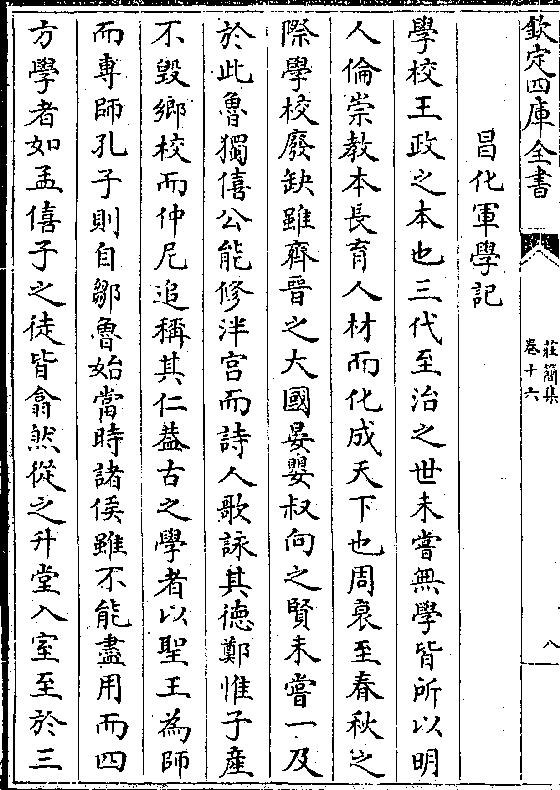 欽定四庫全書
莊簡集
卷十六
八
昌化軍學記
學校王政之本也三代至治之世未嘗無學皆所以明
人倫崇教本長育人材而化成天下也周衰至春秋之
際學校廢缺雖齊晉之大國晏嬰叔向之賢未嘗一及
於此魯獨僖公能修泮宮而詩人歌詠其德鄭惟子產
不毀鄉校而仲尼追稱其仁葢古之學者以聖王為師
而專師孔子則自鄒魯始當時諸侯雖不能盡用而四
方學者如孟僖子之徒皆翕然從之升堂入室至於三